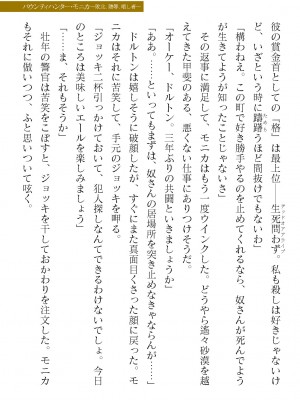 バウンティハンター・モニカ〜魔女、隠密、呪い者〜
彼の賞金首としての「格」は最上位――生死問わず。私も殺しは好きじゃないけ
ど、いざという時に躊躇うほど間抜けでもないわ」
「構わねえ。この町で好き勝手やるのを止めてくれるなら、奴さんが死んでよう
が生きてようが知ったことじゃないさ」
その返事に満足して、モニカはもう一度ウインクした。どうやら遙々砂漠を越
えてきた甲斐のある、悪くない仕事にありつけそうだ。
「オーケー、ドルトン。三年ぶりの共闘といきましょうか」
「ああ。……といってもまずは、奴さんの居場所を突き止めなきゃならんが……」
ドルトンは嬉しそうに破顔したが、すぐにまた真面目くさった顔に戻った。モ
ニカはそれに苦笑して、手元のジョッキを呷る。
「ジョッキ二杯引っかけておいて、犯人探しなんてできるわけないでしょ。今日
のところは美味しいエールを楽しみましょう」
「……ま、それもそうか」
壮年の警官は苦笑をこぼすと、ジョッキを干しておかわりを注文した。モニカ
もそれに倣いつつ、ふと思いついて呟く。